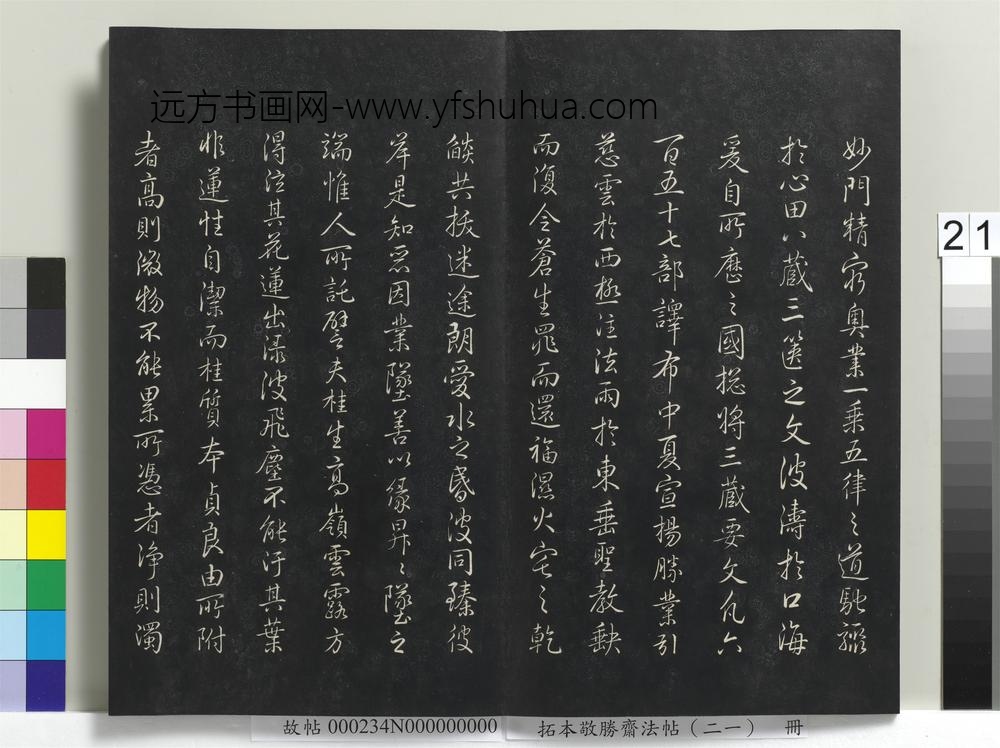 远方书画网-www.yfshuhua.com
妙門精窮奧業一乘五律之道馳驟
於心田八藏三篋之文波濤於口海
爰自所歷之國揔將三藏要文凡六
百五十七部譯布中夏宣揚勝業引
慈雲於西極注法雨於東垂聖教缺
而復全蒼生罪而還福濕火宅之乾
燄共拔迷途朗愛水之昏波同臻彼
岸是知惡因業墜善以緣昇〻墜之
端惟人所託譬夫桂生高嶺雲露方
得泫其花蓮出淥波飛塵不能汙其葉
非蓮性自潔而桂質本貞良由所附
者高則微物不能累所憑者淨則濁
21
故帖 000234N000000000 拓本敬勝齋法帖（二一） 冊